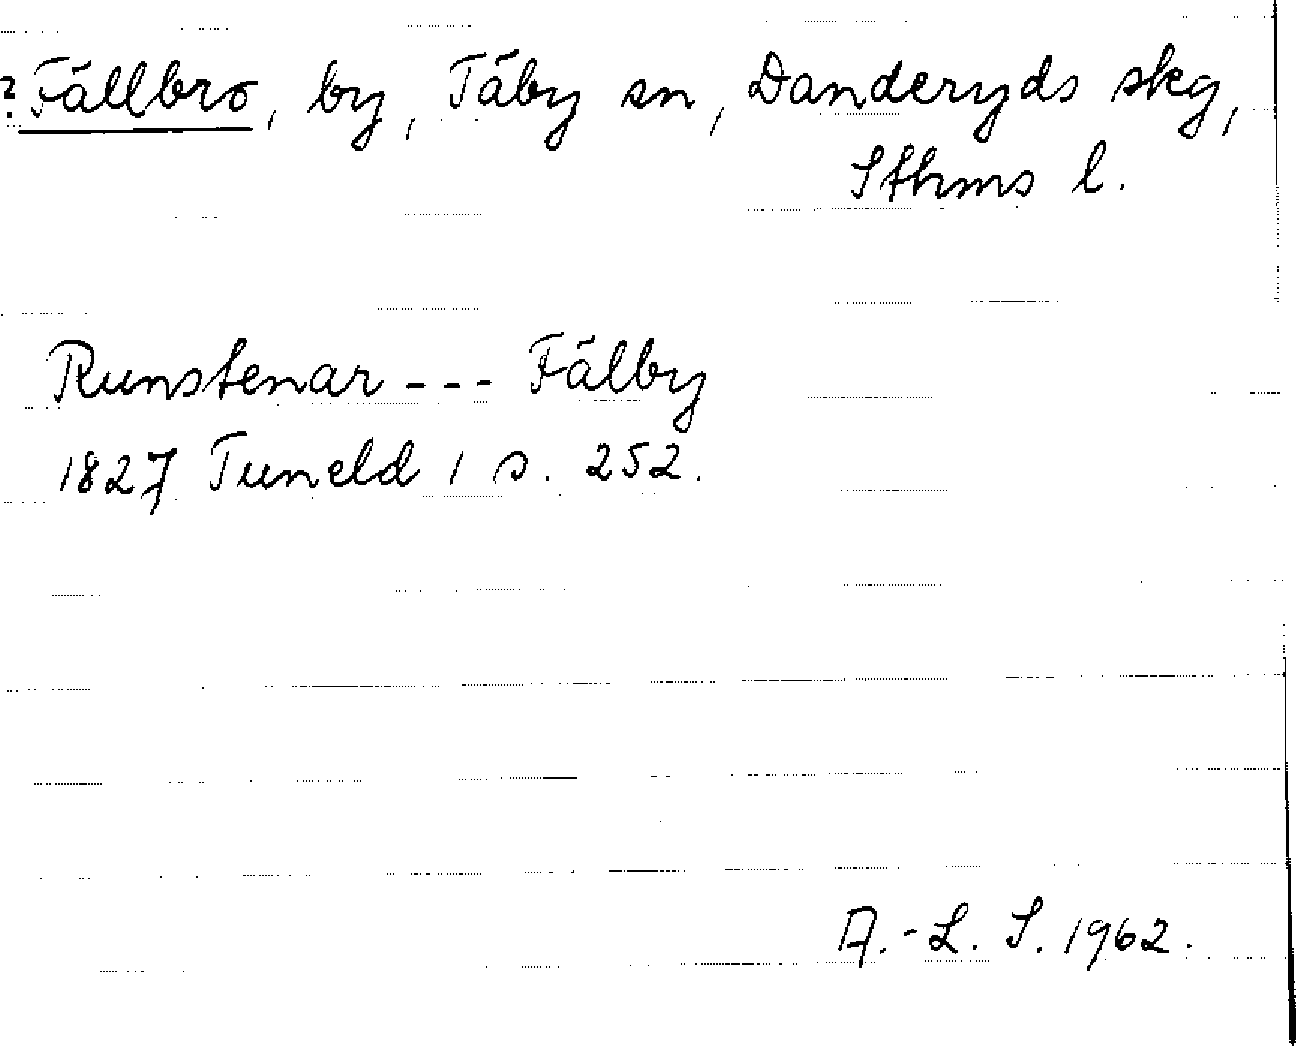 ? Fällbro, by, Täby sn, Danderyds skg,
Sthms l.
Runstenar --- Fälby
1827 Tuneld 1 s. 252.
A.-L. S. 1962.